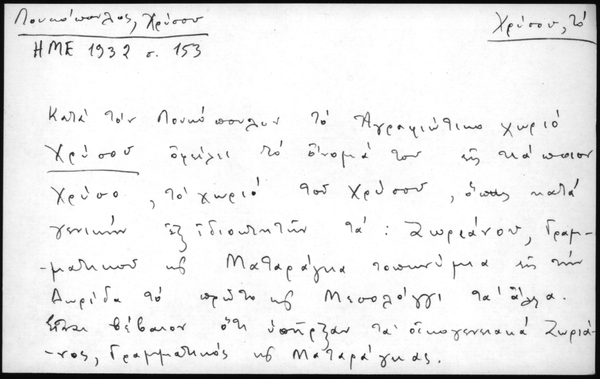 Λουκόπουλος, Χρύσου
Χρύσου, τὸ
ΗΜΕ 1932 σ. 153
Κατὰ τὸν Λουκόπουλον τὸ Ἀγραφιώτικο χωριὸ
Χρύσου ὀφείλει τὸ ὄνομά του εἰς κάποιον
Χρύσο, τὸ χωριὸ τοῦ Χρύσου, ὅπως κατὰ
γενικὴν ἐξ ἰδιοκτητῶν τὰ: Ζωριάνου, Γραμ-
-ματικοῦ κ Ματαράγκα τοπωνύμια εἰς τὴν
Δωρίδα τὸ πρῶτο κ Μεσολόγγι τὰ ἄλλα.
Εἶναι βέβαιον ὅτι ὑπῆρξαν τὰ οἰκογενειακὰ Ζωριά-
-νος, Γραμματικὸς κ Ματαράγκας.